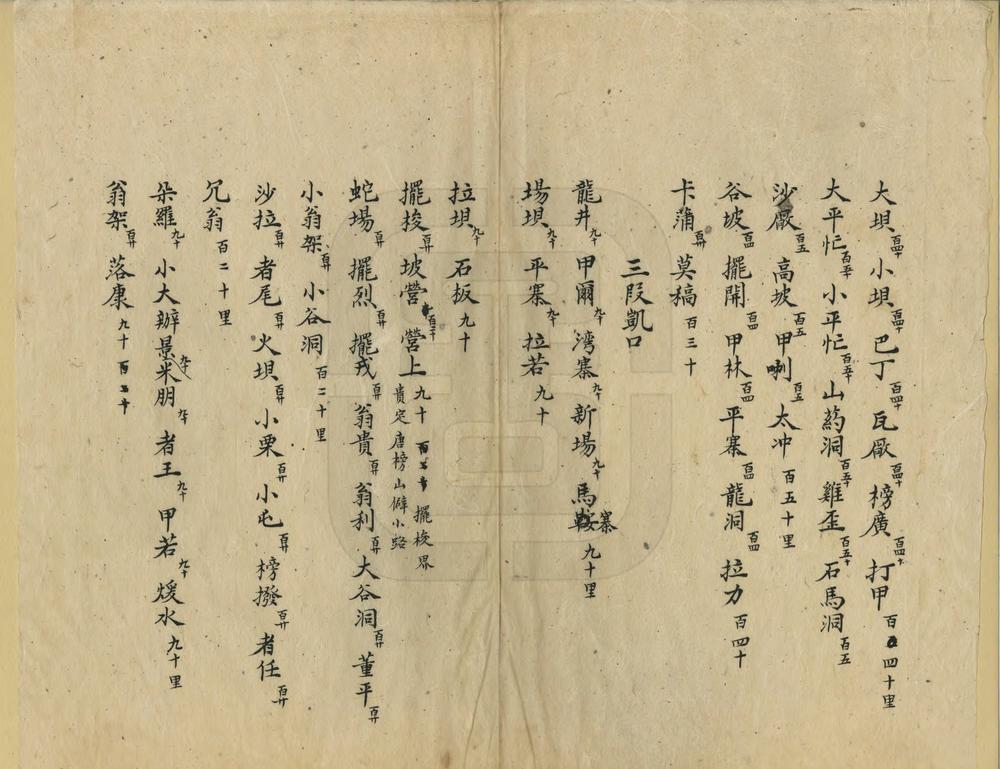 大坝百四十 小坝百四十 巴丁百四十 瓦厰百四十 榜廣百四十 打甲百四十里
大平忙百五十 小平忙百五十 山药洞百五十 雞歪百五十 石馬洞百五
沙厰百五 高坡百五 甲喇百五 太冲百五十里
谷坡百四 擺開百四 甲林百四 平寨百四 龍洞百四 拉力百四十
卡蒲百卅 莫稿百三十
三段凱口
龍井九十 甲爾九十 湾寨九十 新場九十 馬鞍寨九十里
場坝九十 平寨九十 拉若九十
拉坝九十 石板九十
擺梭百廿 坡營百二十 營上九十 百二十 擺梭界 貴定唐榜山僻小路
蛇場百廿 擺烈百廿 擺戎百廿 翁貴百廿 翁利百廿 大谷洞百廿 董平百廿
小翁架百廿 小谷洞百二十里
沙拉百廿 者尾百廿 火坝百廿 小栗百廿 小屯百廿 榜撥百廿 者任百廿
冗翁百二十里
朵羅九十 小大辦景九十米朋九十 者王九十 甲若九十 煖水九十里
翁架百廿 落康九十 百二十